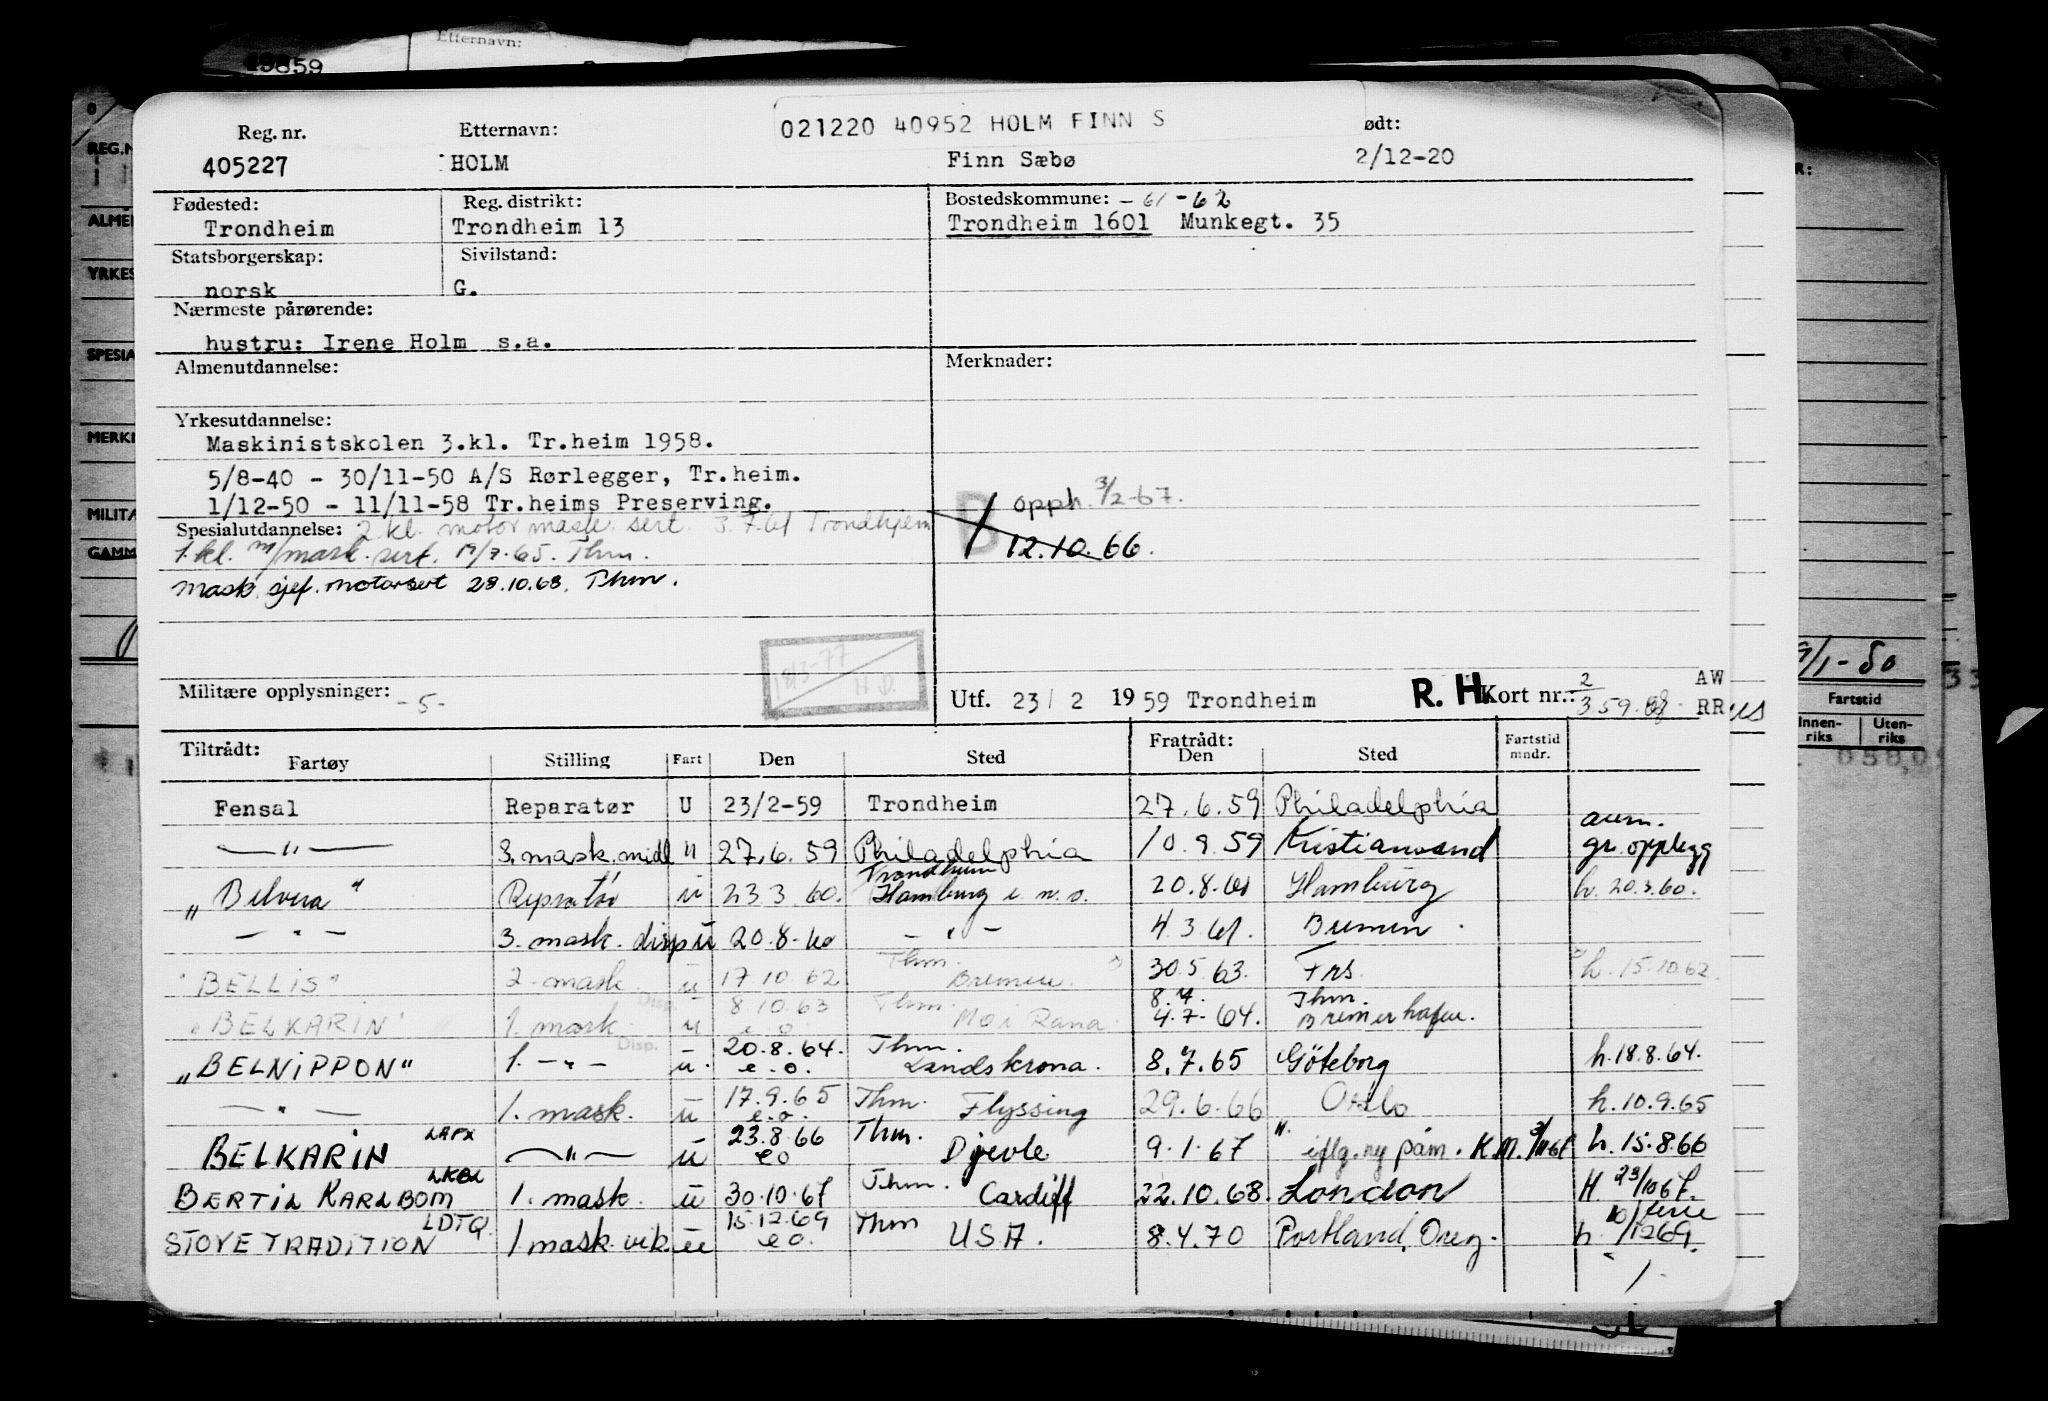 Etternavn:
021220 40952 HOLM FINN S
Reg. nr. Etternavn: ødt:
405227 HOLM Finn Sæbø 2/12-20
Fødested: Reg. distrikt: Bostedskommune: - 61 - 62
Trondheim Trondheim 13 Trondheim 1601 Munkegt. 35
Statsborgerskap: Sivilstand:
norsk G.
Nærmeste pårørende:
hustru: Irene Holm s.a.
Almenutdannelse: Merknader:
Yrkesutdannelse:
Maskinistskolen 3.kl. Tr.heim 1958.
5/8-40 - 30/11-50 A/S Rørlegger, Tr.heim.
1/12-50 - 11/11-58 Tr.heims Preserving.
opph. 3/2-67.
B 12.10.66.
Spesialutdannelse: 2 kl. motor mask. sert. 3.7.61 Trondhjem
1. kl. m/mask. sert. 17/7.65. Thm.
Mask. sjef. motorsert 23.10.68. Thm.
18/3-77
H.D.
Militære opplysninger: - 5 -
Utf. 23/2 1959 Trondheim R. H. Kort nr.: 2 AW
RR
Tiltrådt: Fratrådt:
Fartøy Stilling Fart Den Sted Den Sted Fartstid mndr.
Fensal Reparatør U 23/2-59 Trondheim 27.6.59 Philadelphia
—„— 3. mask. midl " 27.6.59 Philadelphia 10.9.59 Kristiansand avm. gr. opplegg
„Belvera" Reparatør u 23.3.60. Trondheim Hamburg e.n.o. 20.8.60 Hamburg h. 20.3.60.
—„— 3. mask. disp u 20.8.60 —„— 4.3.61. Bremen.
"BELLIS" 2. mask. u 17.10.62 Thm. Bremen. 30.5.63. Frs. h. 15.10.62.
„BELKARIN" 1. mask. Disp. u 8.10.63 e.o. Thm. Mo i Rana 8.7. 4.7-64. Thm. Bremerhafen.
„BELNIPPON" 1. —„— Disp. u. 20.8.64. e.o. Thm. Landskrona. 8.7.65 Göteborg h. 18.8.64.
—„— 1. mask. u 17.9.65 e.o. Thm. Flyssing 29.6.66 Oslo h. 10.9.65
BELKARIN LAPX —„— u 23.8.66 eo Thm. Djevle 9.1.67 " iflg. ny påm. K.M. h. 15.8.66
BERTIL KARLBOM 1. mask. u 30.10.67 Thm. Cardiff 22.10.68. London H. 23/10 67.
STOVE TRADITION LDTQ. 1 mask. vik. u 15.12.69 e o. Thm USA. 8.4.70 Portland, Oreg. h. 10/1269.
REG.N
ALMEN
YRKES
SPESIA
MERKN
MILITÆ
GAMM
9/1-50
Fartstid
Innen-
riks
Uten-
riks